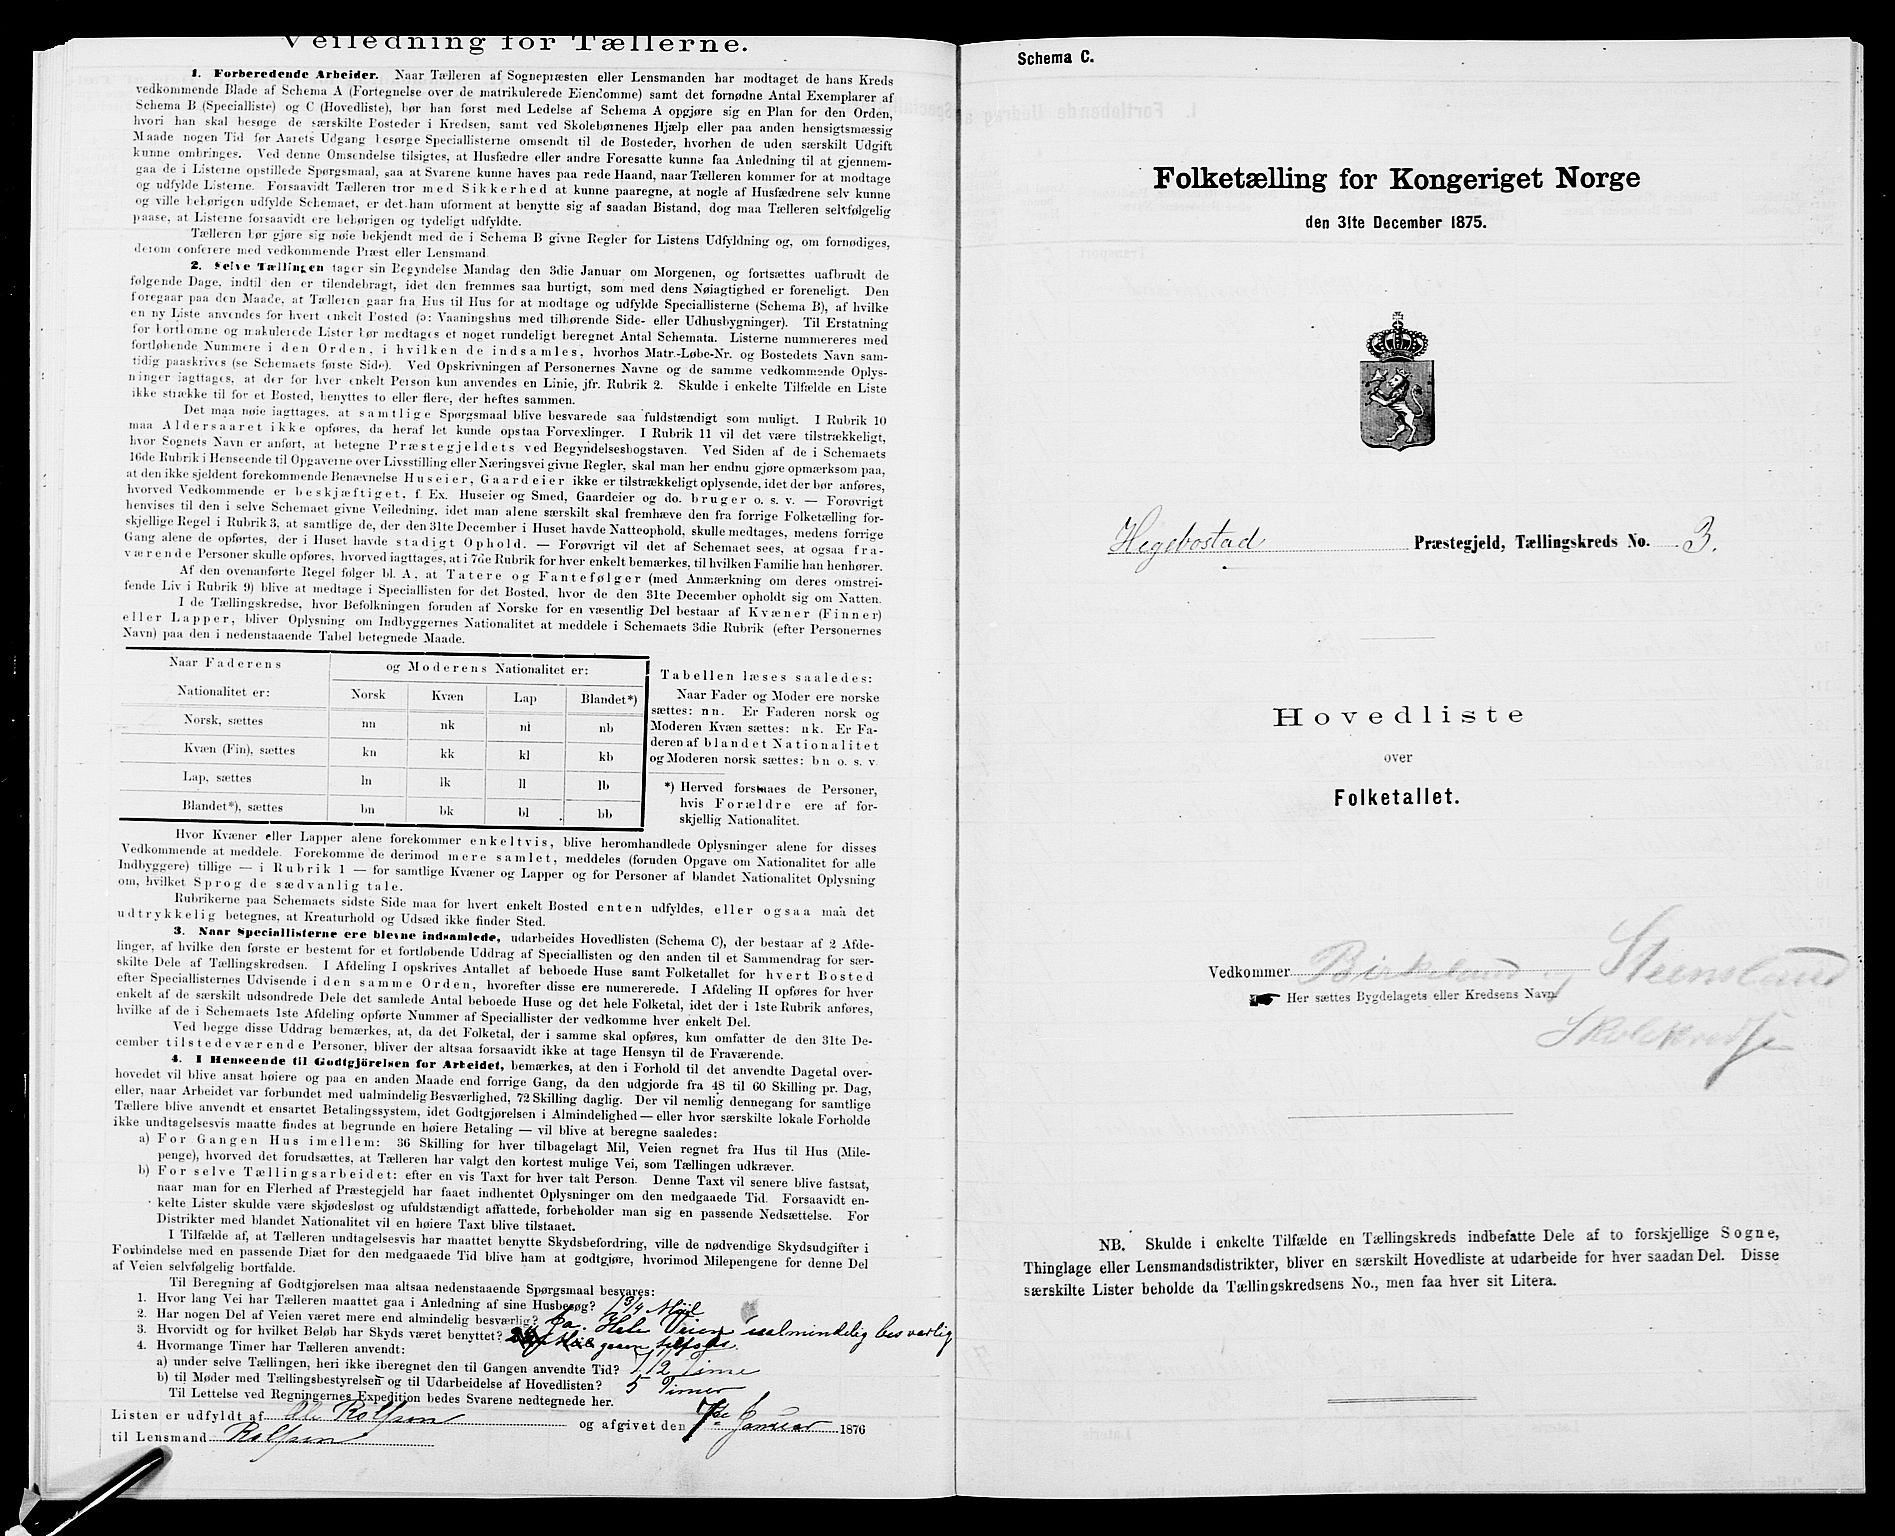 Veiledning for Tællerne.
1. Forberedende Arbeider. Naar Tælleren af Sognepræsten eller Lensmanden har modtaget de hans Kreds
vedkommende Blade af Schema A (Fortegnelse over de matrikulerede Eiendomme) samt det fornødne Antal Exemplarer af
Schema B (Specialliste) og C (Hovedliste), bør han først med Ledelse af Schema A opgjøre sig en Plan for den Orden,
hvori han skal besøge de særskilte Bosteder i Kredsen, samt ved Skolebørnenes Hjælp eller paa anden hensigtsmæssig
Maade nogen Tid før Aarets Udgang besørge Speciallisterne omsendt til de Bosteder, hvorhen de uden særskilt Udgift
kunne ombringes. Ved denne Omsendelse tilsigtes, at Husfædre eller andre Foresatte kunne faa Anledning til at gjennem-
gaa de i Listerne opstillede Spørgsmaal, saa at Svarene kunne haves paa rede Haand, naar Tælleren kommer for at modtage
og udfylde Listerne. Forsaavidt Tælleren tror med Sikkerhed at kunne paaregne, at nogle af Husfædrene selv kunne
og ville behørigen udfylde Schemaet, er det ham uforment at benytte sig af saadan Bistand, dog maa Tælleren selvfølgelig
paase, at Listerne forsaavidt ere behørigen og tydeligt udfyldte.
Tælleren bør gjøre sig nøie bekjendt med de i Schema B givne Regler for Listens Udfyldning og, om fornødiges,
derom conferere med vedkommende Præst eller Lensmand
2. Selve Tællingen tager sin Begyndelse Mandag den 3die Januar om Morgenen, og fortsættes uafbrudt de
følgende Dage, indtil den er tilendebragt, idet den fremmes saa hurtigt, som med dens Nøiagtighed er foreneligt. Den
foregaar paa den Maade, at Tælleren gaar fra Hus til Hus for at modtage og udfylde Speciallisterne (Schema B), af hvilke
en ny Liste anvendes for hvert enkelt Bosted (ɔ: Vaaningshus med tilhørende Side- eller Udhusbygninger). Til Erstatning
for bortkomne og makulerede Lister bør medtages et noget rundeligt beregnet Antal Schemata. Listerne nummereres med
fortløbende Nummere i den Orden, i hvilken de indsamles, hvorhos Matr.-Løbe-Nr. og Bostedets Navn sam-
tidig paaskrives (se Schemaets første Side). Ved Opskrivningen af Personernes Navne og de samme vedkommende Oplys-
ninger iagttages, at der for hver enkelt Person kun anvendes en Linie, jfr. Rubrik 2. Skulde i enkelte Tilfælde en Liste
ikke strække til for et Bosted, benyttes to eller flere, der heftes sammen.
Det maa nøie iagttages, at samtlige Spørgsmaal blive besvarede saa fuldstændigt som muligt. I Rubrik 10
maa Aldersaaret ikke opføres, da heraf let kunde opstaa Forvexlinger. I Rubrik 11 vil det være tilstrækkeligt,
hvor Sognets Navn er anført, at betegne Præstegjeldets ved Begyndelsesbogstaven. Ved Siden af de i Schemaets
16de Rubrik i Henseende til Opgaverne over Livsstilling eller Næringsvei givne Regler, skal man her endnu gjøre opmærksom paa,
at den ikke sjeldent forekommende Benævnelse Huseier, Gaardeier ikke er tilstrækkeligt oplysende, idet der bør anføres,
hvorved Vedkommende er beskjæftiget, f. Ex. Huseier og Smed, Gaardeier og do. bruger o. s. v. — Forøvrigt
henvises til den i selve Schemaet givne Veiledning, idet man alene særskilt skal fremhæve den fra forrige Folketælling for-
skjellige Regel i Rubrik 3, at samtlige de, der den 31te December i Huset havde Natteophold, skulle medtages, medens forrige
Gang alene de opførtes, der i Huset havde stadigt Ophold. — Forøvrigt vil det af Schemaet sees, at ogsaa fra-
værende Personer skulle opføres, hvorved iagttages, at i 7de Rubrik for hver enkelt bemærkes, til hvilken Familie han henhører.
Af den ovenanførte Regel følger bl. A. at Tatere og Fantefølger (med Anmærkning om deres omstrei-
fende Liv i Rubrik 9) blive at medtage i Speciallisten for det Bosted, hvor de den 31te December opholdt sig om Natten.
I de Tællingskredse, hvor Befolkningen foruden af Norske for en væsentlig Del bestaar af Kvæner (Finner)
eller Lapper, bliver Oplysning om Indbyggernes Nationalitet at meddele i Schemaets 3die Rubrik (efter Personernes
Navn) paa den i nedenstaaende Tabel betegnede Maade.
Naar Faderens og Moderens Nationalitet er:
Nationalitet er: Norsk Kvæn Lap Blandet*)
Norsk, sættes nn nk nl nb
Kvæn (Fin), sættes kn kk kl kb
Lap, sættes ln lk ll lb
Blandet*), sættes bn bk bl bb
Tabellen læses saaledes:
Naar Fader og Moder ere norske
sættes: nn. Er Faderen norsk og
Moderen Kvæn sættes: nk. Er Fa-
deren af blandet Nationalitet
og Moderen norsk sættes: bn o. s. v
*) Herved forstaaes de Personer,
hvis Forældre ere af for-
skjellig Nationalitet.
Hvor Kvæner eller Lapper alene forekommer enkeltvis, blive heromhandlede Oplysninger alene for disses
Vedkommende at meddele. Forekomme de derimod mere samlet, meddeles (foruden Opgave om Nationalitet for alle
Indbyggere) tillige — i Rubrik 1 — for samtlige Kvæner og Lapper og for Personer af blandet Nationalitet Oplysning
om, hvilket Sprog de sædvanlig tale.
Rubrikerne paa Schemaets sidste Side maa for hvert enkelt Bosted enten udfyldes, eller ogsaa maa det
udtrykkelig betegnes, at Kreaturhold og Udsæd ikke finder Sted.
3. Naar Speciallisterne ere blevne indsamlede, udarbeides Hovedlisten (Schema C), der bestaar af 2 Afde-
linger, af hvilke den første er bestemt for et fortløbende Uddrag af Speciallisten og den anden til et Sammendrag for sær-
skilte Dele af Tællingskredsen. I Afdeling I opskrives Antallet af beboede Huse samt Folketallet for hvert Bosted
efter Speciallisternes Udvisende i den samme Orden, hvorefter disse ere numererede. I Afdeling II opføres for hver
enkelt af de særskilt udsondrede Dele det samlede Antal beboede Huse og det hele Folketal, idet der i 1ste Rubrik anføres,
hvilke af de i Schemaets 1ste Afdeling opførte Nummer af Speciallister der vedkomme hver enkelt Del.
Ved begge disse Uddrag bemærkes, at, da det Folketal, der i samme skal opføres, kun omfatter de den 31te De-
cember tilstedeværende Personer, bliver der altsaa forsaavidt ikke at tage Hensyn til de Fraværende.
4. I Henseende til Godtgjörelsen for Arbeidet, bemærkes, at den i Forhold til det anvendte Dagetal over-
hovedet vil blive ansat høiere og paa en anden Maade end forrige Gang, da den udgjorde fra 48 til 60 Skilling pr. Dag,
eller, naar Arbeidet var forbundet med ualmindelig Besværlighed, 72 Skilling daglig. Der vil nemlig dennegang for samtlige
Tællere blive anvendt et ensartet Betalingssystem, idet Godtgjørelsen i Almindelighed — eller hvor særskilte lokale Forholde
ikke undtagelsesvis maatte findes at begrunde en høiere Betaling — vil blive at beregne saaledes:
a) For Gangen Hus imellem: 36 Skilling for hver tilbagelagt Mil, Veien regnet fra Hus til Hus (Mile-
penge), hvorved det forudsættes, at Tælleren har valgt den kortest mulige Vei, som Tællingen udkræver.
b) For selve Tællingsarbeidet: efter en vis Taxt for hver talt Person. Denne Taxt vil senere blive fastsat,
naar man for en Flerhed af Præstegjeld har faaet indhentet Oplysninger om den medgaaede Tid. Forsaavidt en-
kelte Lister skulde være skjødesløst og ufuldstændigt affattede, forbeholder man sig en passende Nedsættelse. For
Distrikter med blandet Nationalitet vil en høiere Taxt blive tilstaaet.
I Tilfælde af, at Tælleren undtagelsesvis har maattet benytte Skydsbefordring, ville de nødvendige Skydsudgifter i
Forbindelse med en passende Diæt for den medgaaede Tid blive ham at godtgjøre, hvorimod Milepengene for denne Del
af Veien selvfølgelig bortfalde.
Til Beregning af Godtgjørelsen maa altsaa nedenstaaende Spørgsmaal besvares:
1. Hvor lang Vei har Tælleren maattet gaa i Anledning af sine Husbesøg? 1 3/4 Miil
2. Har nogen Del af Veien været mere end almindelig besværlig? Ja. Hele Veien ualmindelig besværlig
3. Hvorvidt og for hvilket Beløb har Skyds været benyttet?
4. Hvormange Timer har Tælleren anvendt:
a) under selve Tællingen, heri ikke iberegnet den til Gangen anvendte Tid? 112 Time
b) til Møder med Tællingsbestyrelsen og til Udarbeidelse af Hovedlisten? 5 Timer
Til Lettelse ved Regningernes Expedition bedes Svarene nedtegnede her.
Listen er udfyldt af Ole Rolfsen og afgivet den 7de Januar 1876
til Lensmand Rolfsen
Schema C.
Folketælling for Kongeriget Norge
den 31te December 1875.
Hegebostad Præstegjeld, Tællingskreds No. 3.
Hovedliste
over
Folketallet.
Vedkommer Birkeland og Steensland
Her sættes Bygdelagets eller Kredsens Navn.
Skolekredse
NB. Skulde i enkelte Tilfælde en Tællingskreds indbefatte Dele af to forskjellige Sogne,
Thinglage eller Lensmandsdistrikter, bliver en særskilt Hovedliste at udarbeide for hver saadan Del. Disse
særskilte Lister beholde da Tællingskredsens No., men faa hver sit Litera.